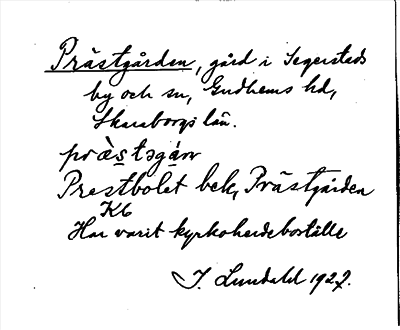 Prästgården, gård i Segerstads
by och sn, Gudhems hd,
Skaraborgs län.
præ̀stəgán
Prestbolet bek, Prästgården
K6
Har varit kyrkoherdeboställe
I. Lundahl 1927.